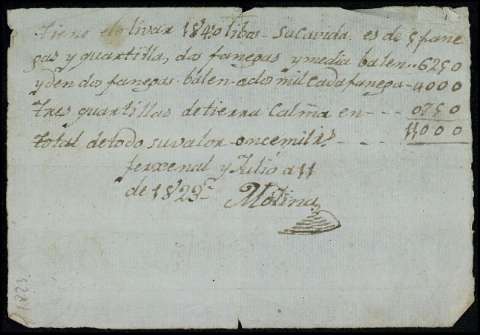 tiene el olivar 184 olibos su cavida es de 5 fane
gas y quartilla, dos fanegas y media balen .. 6250
y den dos fanegas balen ados mil cada fanega - 4000
tres quartillas de tierra Calma en - - - 0750
total de todo su valor once mil rs - - - 11000
fexenal y Julio a 11
de 1829
Molina
1829